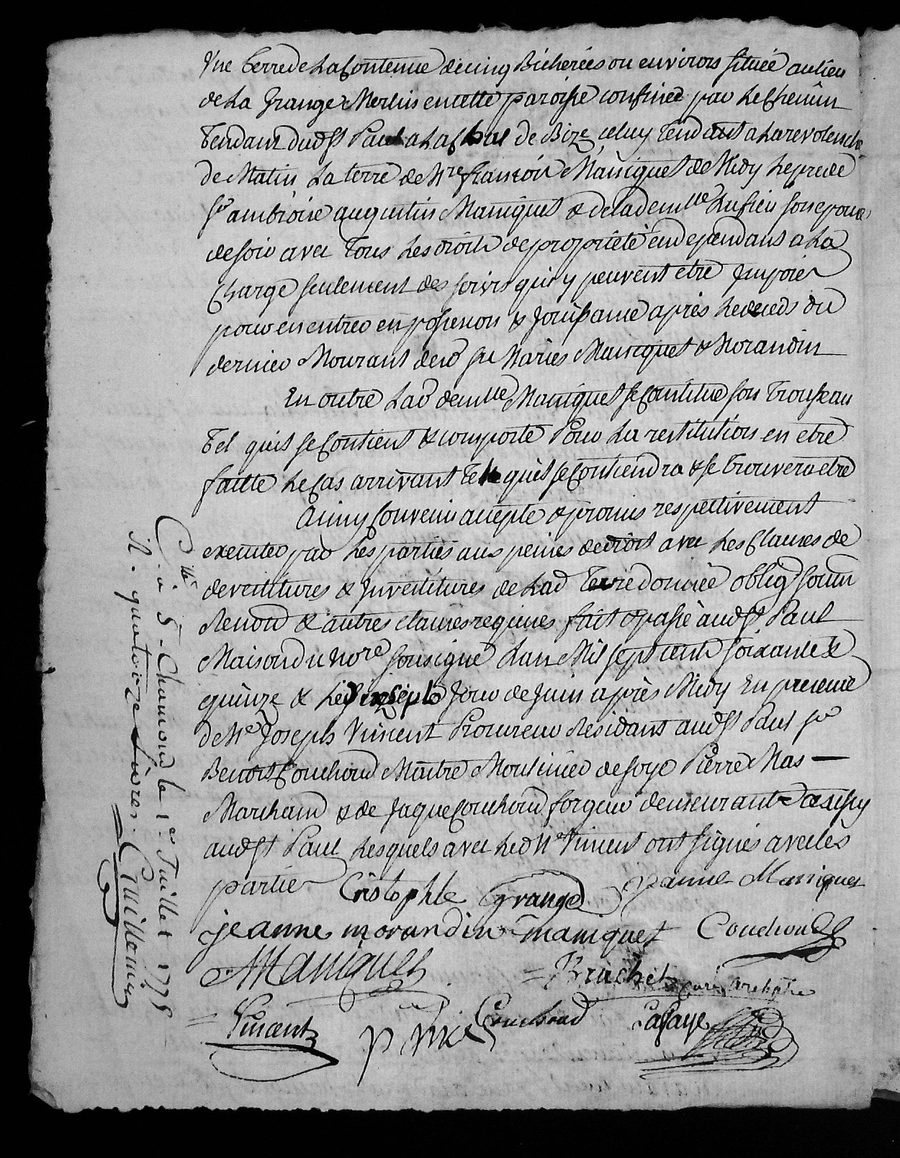 Une terre de la Contenue de cinq Bicherées ou environs située au lieu
de la Grange Merlin en cette paroisse confinée par le Chemin
tendant dud St Paul a la de Bize celuy tendant a la
de Matin la terre de Mre françois Maniquet de Midy le pré de
Sr ambroise augustin Maniquet & de lad demlle son epouse
de soir avec tous les droits de propriété en dependans a la
Charge seulement des servis qui y peuvent etre Imposés
pour en entrer en possession & Jouissance après le deceds du
dernier Mourant desd Sr Mariés Maniquet & Morandin
En outre lad demlle Maniquet se Constitue son Trousseau
tel quil se Contient & comporte Pour la restitution en etre
faitte le cas arrivant tel quil se Contiendra & se trouvera etre
Ainsy Convenu accepté & promis respectivement
executer par les parties aux peines de droit avec les Clauses de
devestitures & Investitures de lad terre donnée oblig soum
Renon & autres clauses requises fait & passé aud St Paul
Maison du Nore soussigné l'an Mil sept cent soixante &
quinze & le dix sept Jour de Juin après Midy En presence
de Me Joseph Vincent Procureur Residant aud St Paul Sr
Benoit Couchoud Maitre Moulinier de soye Pierre Mas
Marchand & de Jaque Couchoud forgeur demeurant
aud St Paul lesquels avec led Me Vincent ont signés avec les
parties
Cristophle grange Jeanne Maniquet
jeanne morandin maniquet Couchoud
Maniquet Bruchet
Vincent Couchoud Lafaye
Clé à St Chamond le 1er Juillet 1775
R. quatorze Livres. Guillemin